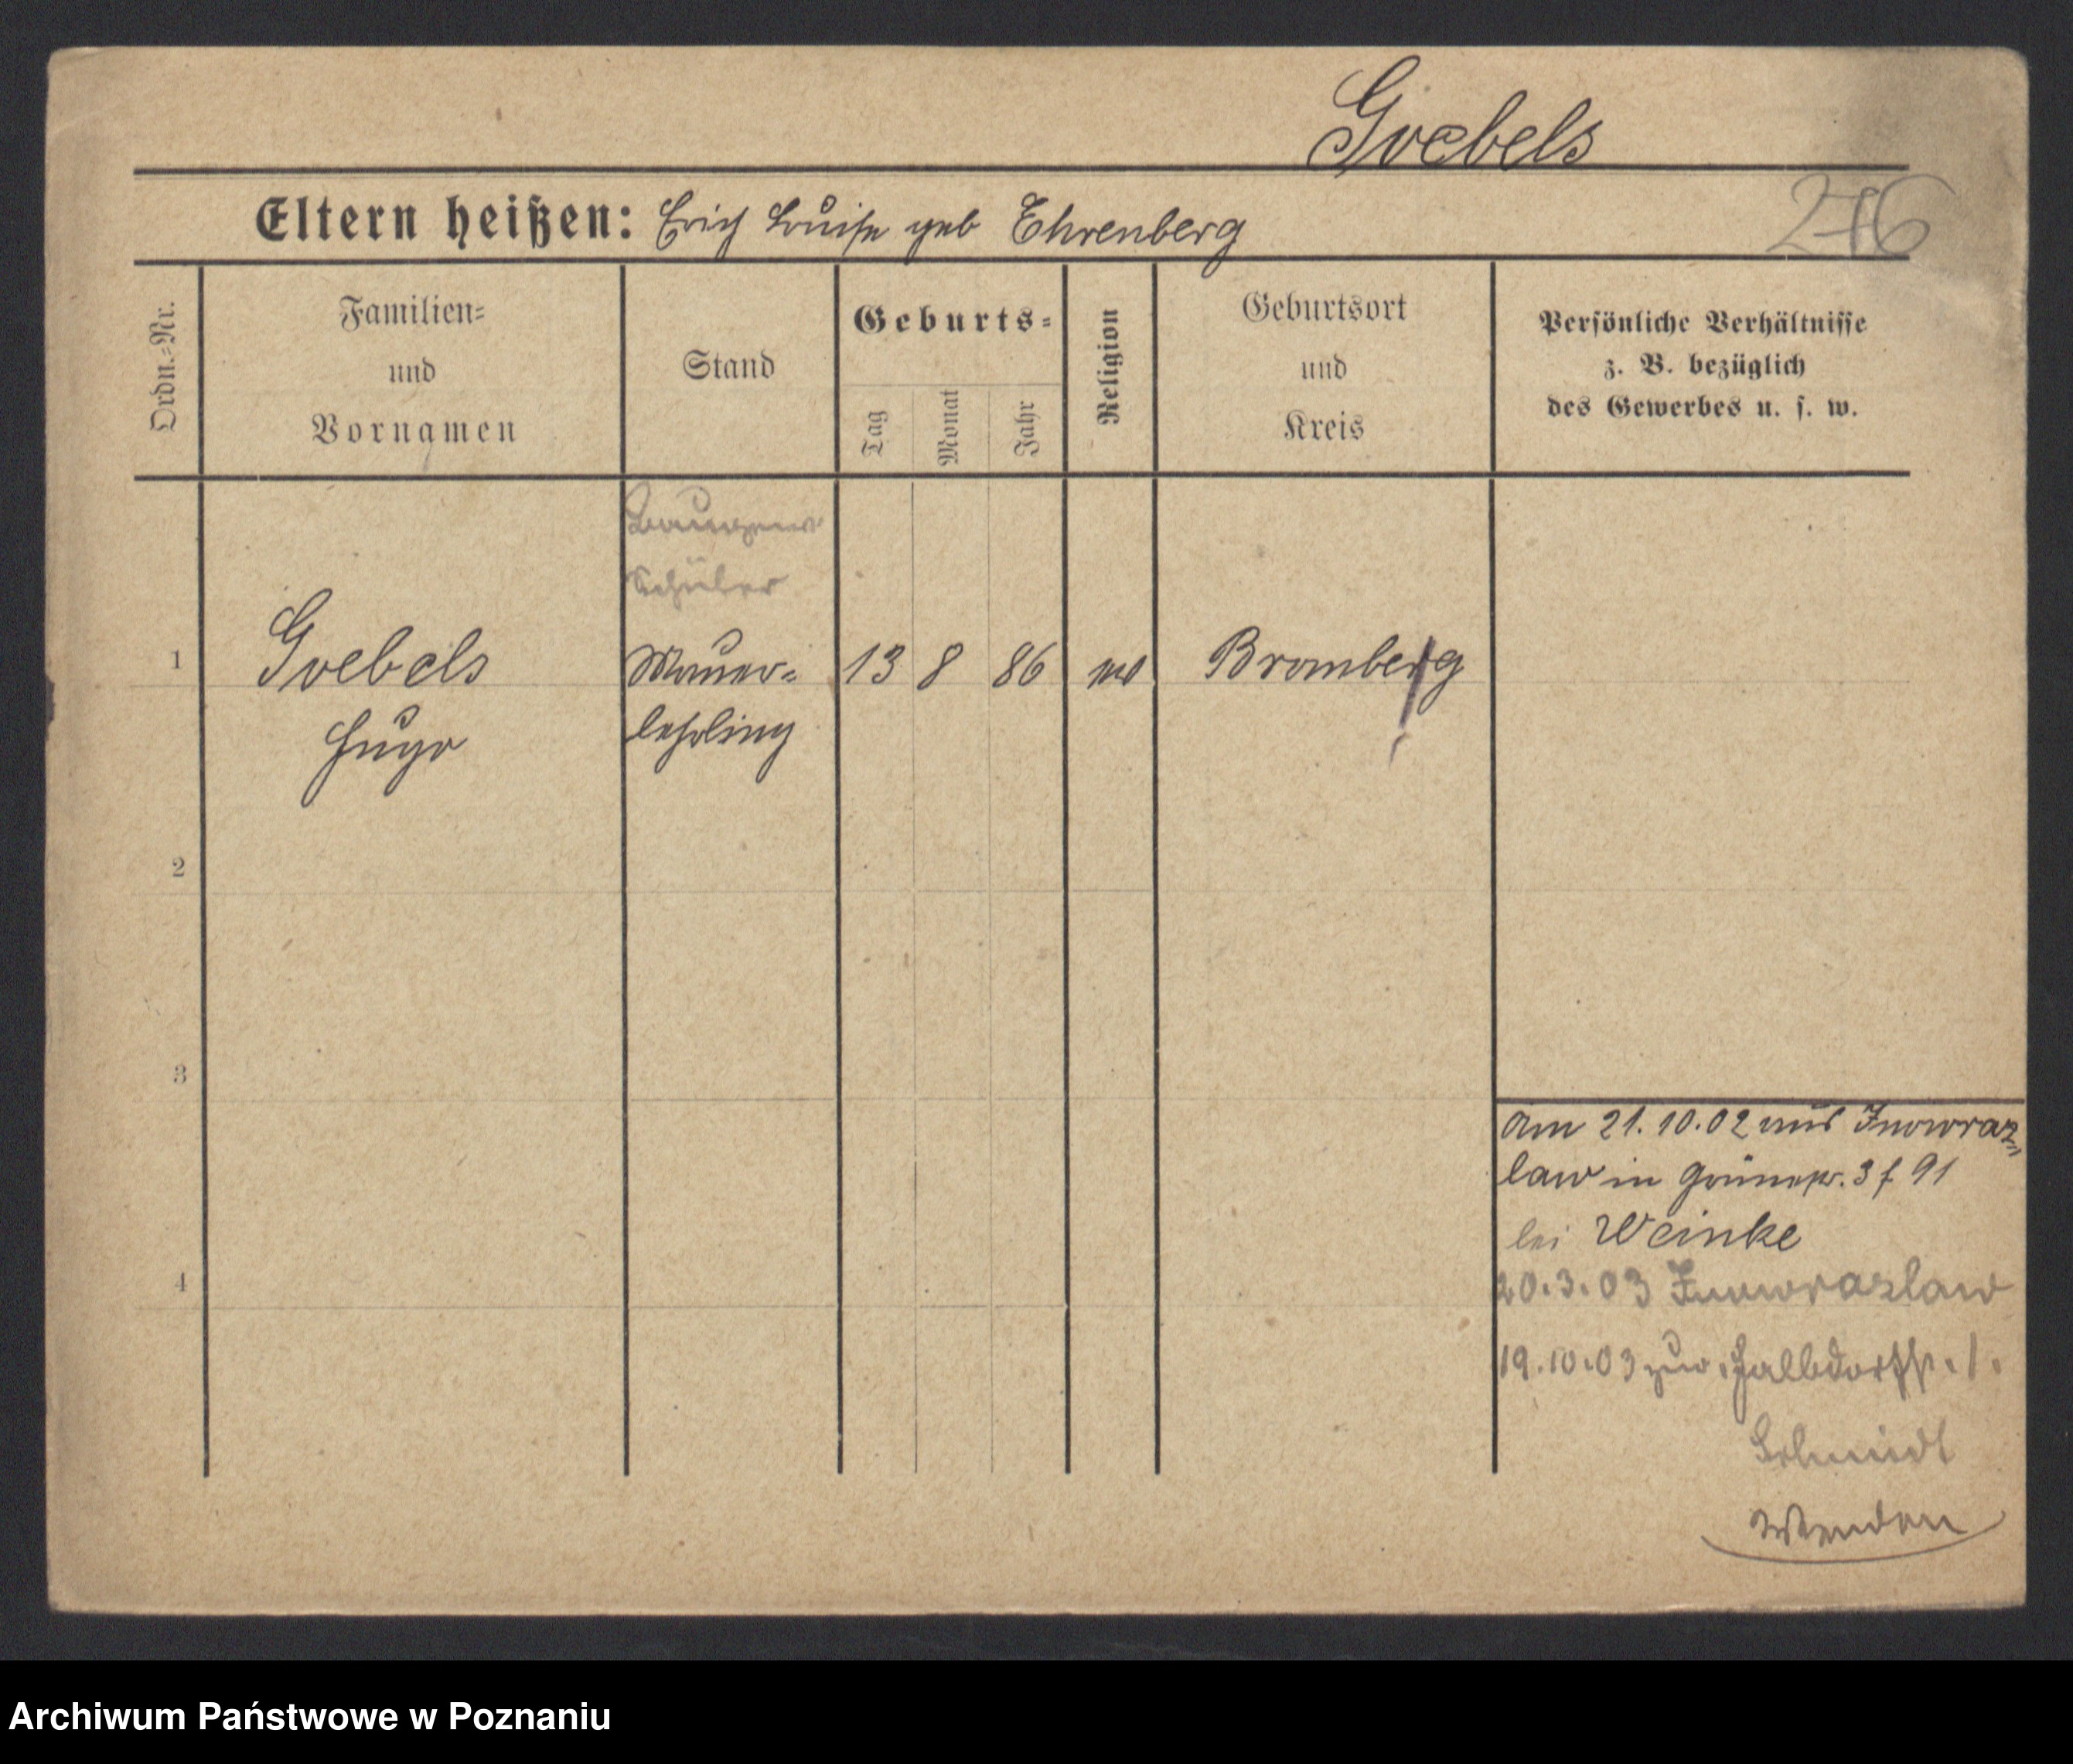 Goebels
Eltern heißen: Erich Luise geb Ehrenberg
276
Ordn.-Nr.
Familien-
und
Vornamen
Stand
Geburts-
Tag
Monat
Jahr
Religion
Geburtsort
und
Kreis
Persönliche Verhältnisse
z. B. bezüglich
des Gewerbes u. s. w.
Schüler
1 Goebels Maurer- 13 8 86 Bromberg
Hugo lehrling
2
3
4
Am 21.10.02 aus Inowraz-
law in 3 f 91
bei Weinke
20.3.03 Inowrazlaw
19.10.03 zur. Halbdorfstr. 1.
Schmidt
Wenden
Archiwum Państwowe w Poznaniu